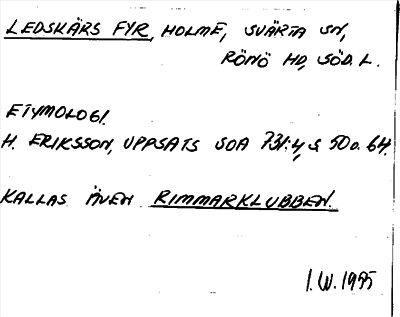 LEDSKÄRS FYR, HOLME, SVÄRTA SN,
RÖNÖ HD, SÖD. L.
ETYMOLOGI.
H. ERIKSSON, UPPSATS SOA 731:4, S 50 o. 64.
KALLAS ÄVEN RIMMARKLUBBEN.
I.W. 1995